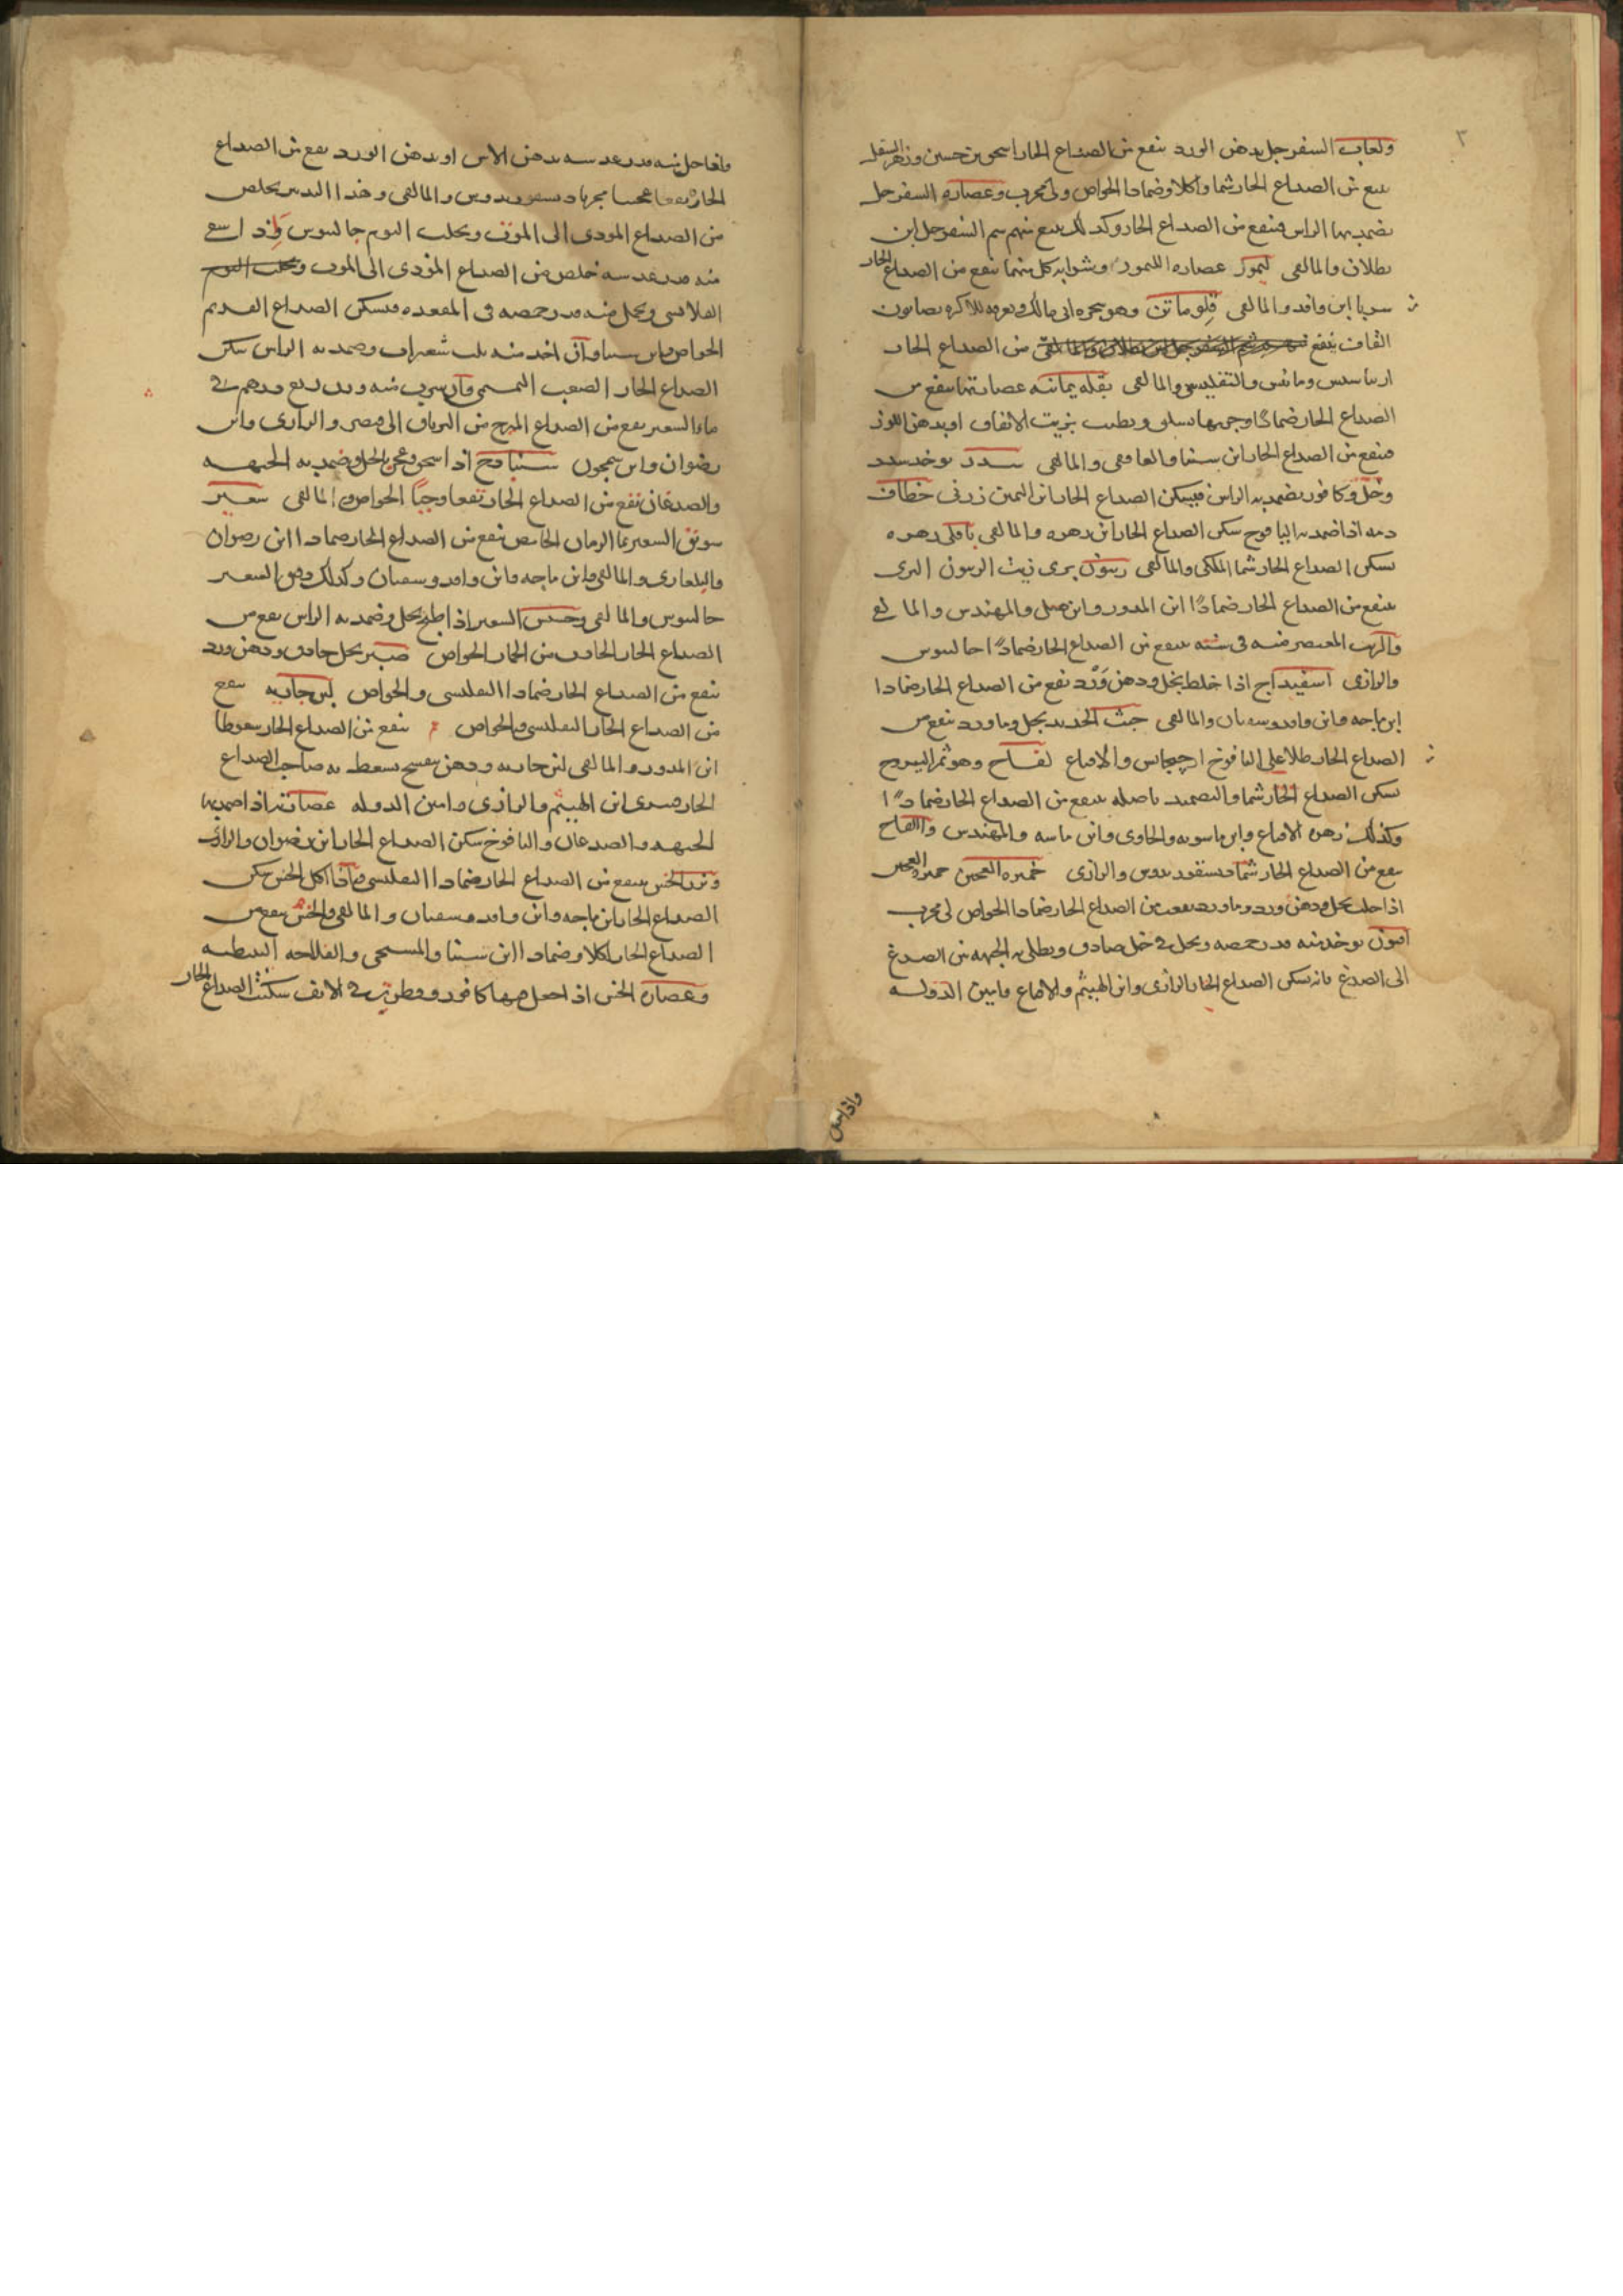 ٣
ولعاب السفرجل بدهن الورد ينفع من الصداع الحار اسحق بن حسين وزهر السفرجل
ينفع من الصداع الحار شما واكلا وضمادا الخواص ولي مجرب وعصاره السفرجل
يضمد بها الراس فينفع من الصداع الحار وكذلك ينفع منهم شم السفرجل ابن
بطلان والمالقى ليمون عصاره الليمون وشرابه كل منهما ينفع من الصداع الحار
ابن وافد والمالقى قلوماتن وهو
القاف ينفع من الصداع الحار
والتفليسى والمالقى بقله يمانيه عصارتها ينفع من
الصداع الحار ضمادا وجرمها يسلق ويطيب بزيت الانفاق او بدهن اللوز
فينفع من الصداع الحار ابن سينا والغافقى والمالقى سدر يوخذ سدر
وخل وكافور يضمد به الراس فيسكن الصداع الحار ابن اليمين زرنى خطاف
دمه اذا ضمد به اليافوخ سكن الصداع الحار ابن زهره والمالقى باقلى زهره
يسكن الصداع الحار شما الملكى والمالقى زيتون برى زيت الزيتون البرى
ينفع من الصداع الحار ضمادا ابن المدور وابن جميل والمهندس والمالقى
والزيت المعتصر منه فى سنته ينفع من الصداع الحار ضمادا جالينوس
والرازى اسفيداج اذا خلط بخل ودهن ورد نفع من الصداع الحار ضمادا
ابن باجه وابن وافد وسفيان والمالقى خبث الحديد بخل وماورد ينفع من
الصداع الحار طلا على اليافوخ ارجيجانس والاقناع لفاح وهو ثمر اليبروح
يسكن الصداع الحار شما والتضميد باصله ينفع من الصداع الحار ضمادا
وكذلك زهره الاقناع وابن ماسويه والحاوى وابن ماسه والمهندس واللفاح
ينفع من الصداع الحار شما ديسقوريدوس والرازى خميره العجين خميره العجين
اذا حلت بخل ودهن ورد وماورد نفعت من الصداع الحار ضمادا الخواص لى مجرب
افيون يوخذ منه قدر حمصه ويحل فى خل صادق ويطلى به الجبهه من الصدغ
الى الصدغ فانه يسكن الصداع الحار الرازى وابن الهيثم والاقناع وامين الدوله
واذا حل
واذا حل منه قدر عدسه بدهن الاس او بدهن الورد نفع من الصداع
الحار نفعا عجيبا مجربا ديسقوريدوس والمالقى وهذا التدبير يخلص
من الصداع المودى الى الموت ويجلب النوم جالينوس واذا اسعط
منه قدر عدسه خلص من الصداع المودى الى الموت ويجلب النوم
القلانسى ويحمل منه قدر حمصه فى المقعده فيسكن الصداع القديم
الخواص وابن سينا وان اخذ منه ثلث شعيرات وضمد به الراس سكن
الصداع الحار الصعب التميمى وان شرب منه وزن ربع درهم فى
ماء الشعير نفع من الصداع المبرح من الترياق الى مصر والرازى وابن
رضوان وابن سمجون سنباذج اذا سحق وعجن بالخل وضمد به الجبهه
والصدغان نفع من الصداع الحار نفعا وحيا الخواص والمالقى شعير
سويق الشعير بما الرمان الحامض ينفع من الصداع الحار ضمادا ابن رضوان
والبلغارى والمالقى وابن باجه وابن وافد وسفيان وكذلك دقيق الشعير
جالينوس والمالقى وحسو الشعير اذا طبخ بخل وضمد به الراس نفع من
الصداع الحار الحادث من الخمار الخواص صبر بخل حاذق ودهن ورد
ينفع من الصداع الحار ضمادا التفليسى والخواص لبن جاريه ينفع
من الصداع الحار التفليسى والخواص ينفع من الصداع الحار سعوطا
ابن المدور والمالقى لبن جاريه ودهن بنفسج يسعط به صاحب الصداع
الحار فيبرى ابن الهيثم والرازى وامين الدوله عصارته اذا ضمد بها
الجبهه والصدغان واليافوخ سكن الصداع الحار ابن رضوان والرازى
وبزر الخس ينفع من الصداع الحار ضمادا التفليسى واذا اكل الخس سكن
الصداع الحار ابن باجه وابن وافد وسفيان والمالقى والخس ينفع من
الصداع الحار اكلا وضمادا ابن سينا والمسيحى والفلاحه النبطيه
وعصاره الخس اذا جعل فيها كافور وقطرت فى الانف سكنت الصداع الحار